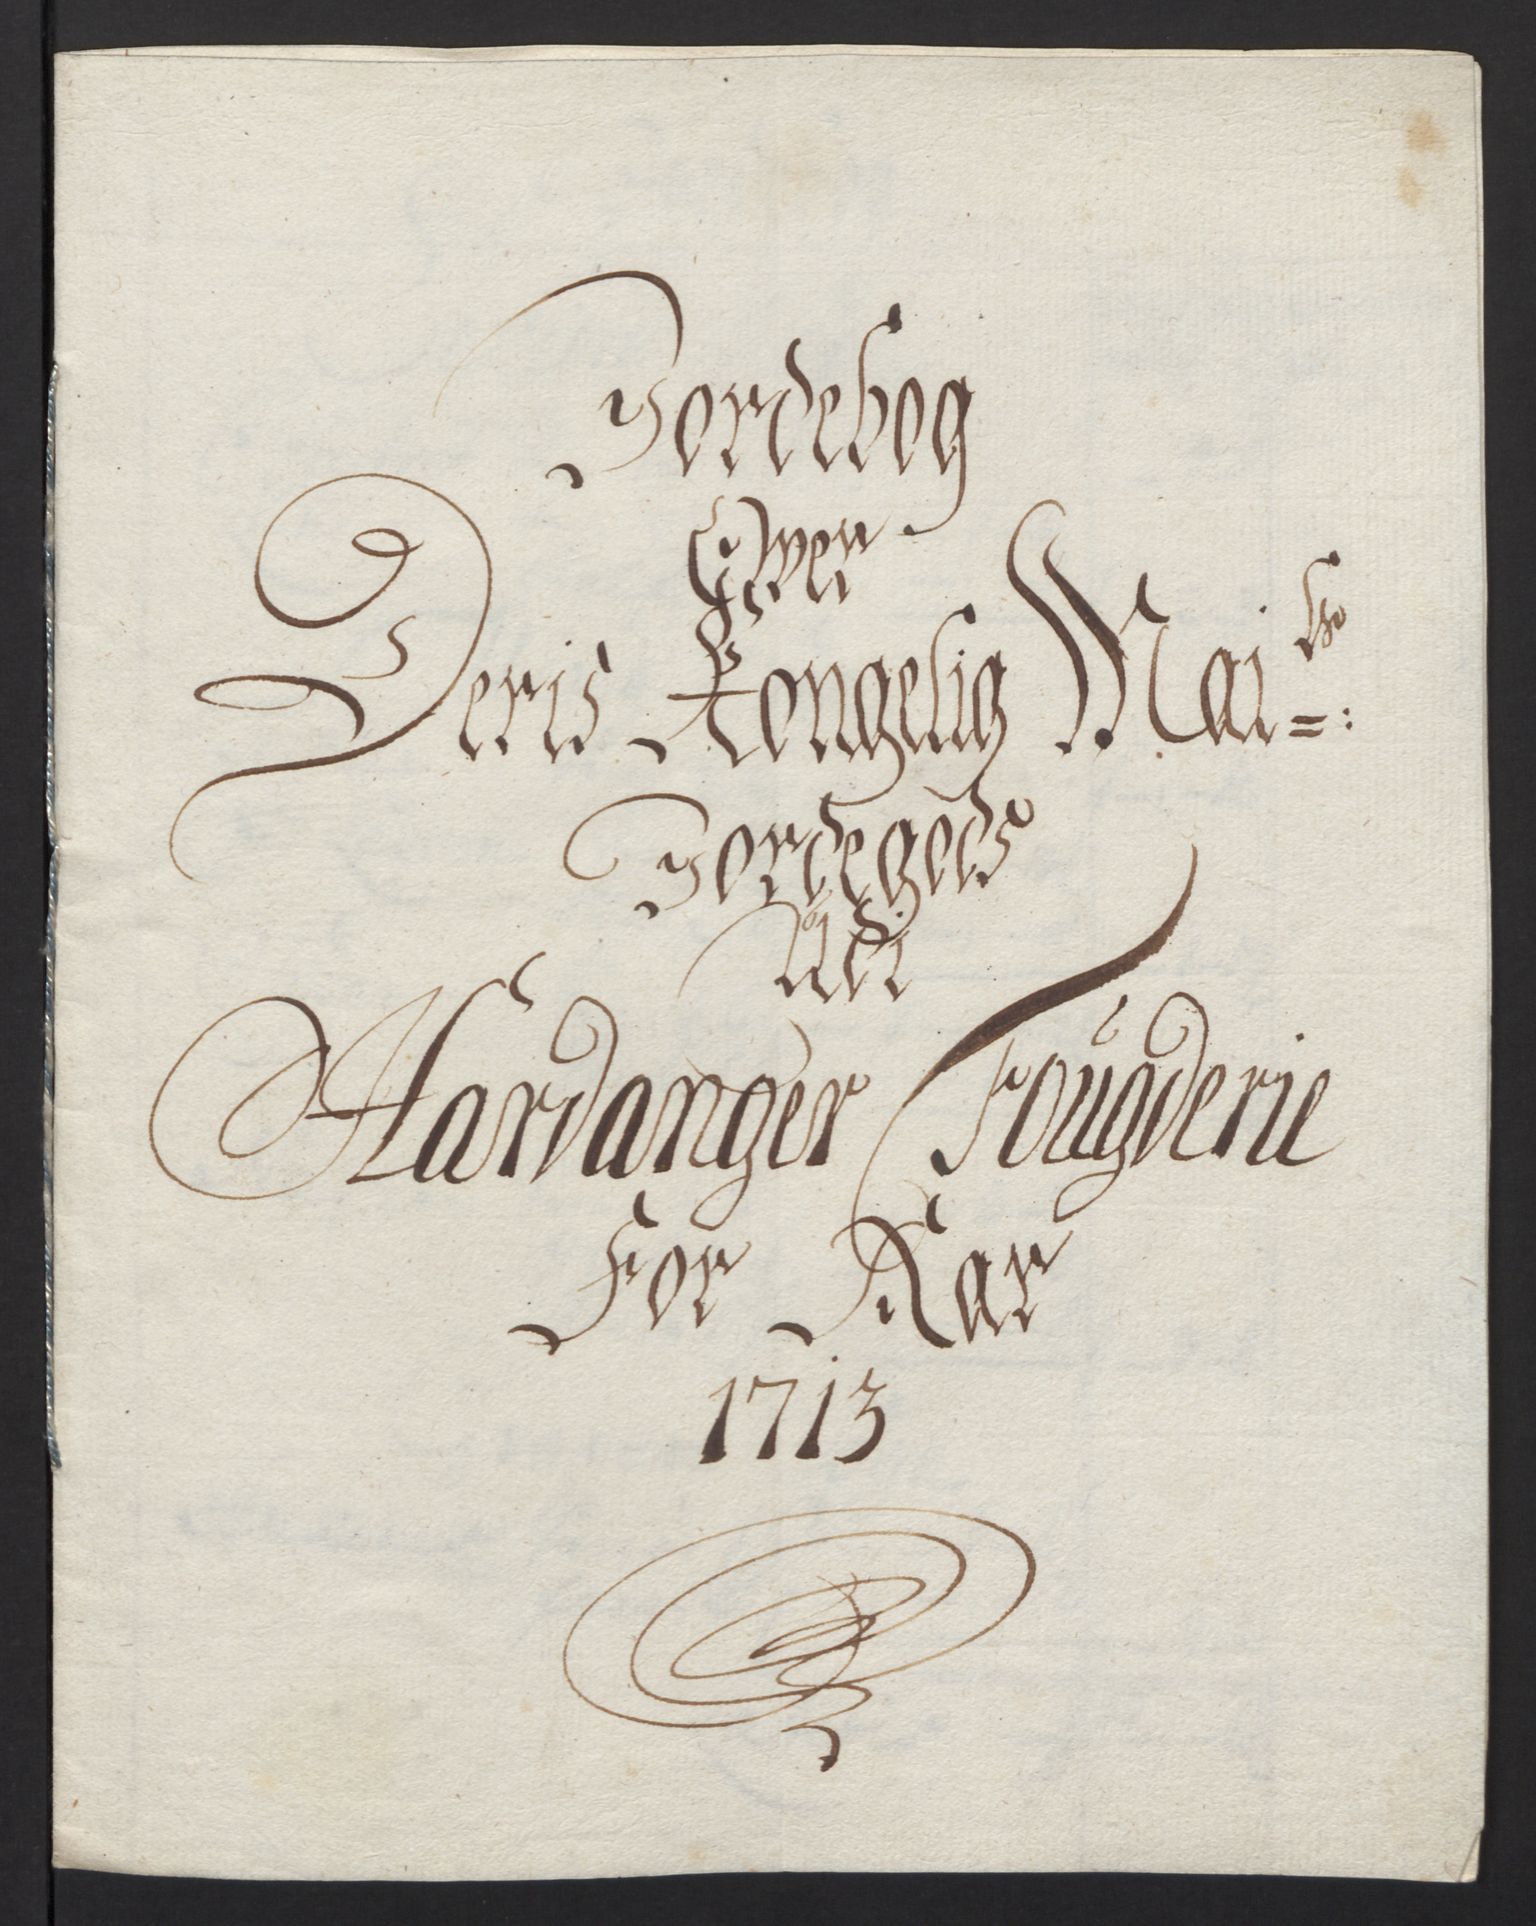 Jordebog
Ower
Deris Kongelig Mai=ts:
Jordegods
Udi
Hardanger Fougderie
For Aar
1713